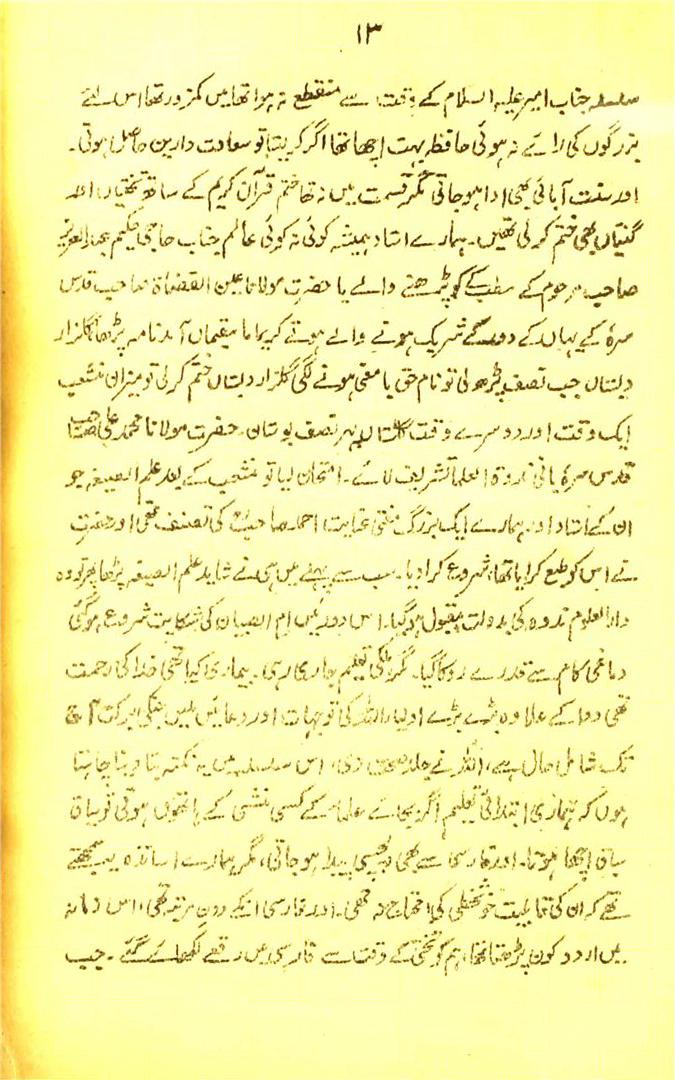 ۱۳
سلسلہ جناب امیر علیہ السلام کے وقت سے منقطع نہ ہوا تھا میں کمزور تھا اس لئے
بزرگوں کی رائے نہ ہوئی حافظہ بہت اچھا تھا اگر کر لیتا تو سعادت دارین حاصل ہوتی۔
اور سنت آبائی بھی ادا ہو جاتی مگر قسمت میں نہ تھا ختم قرآن کریم کے ساتھ تختیاں اور
گنتیاں بھی ختم کر لی تھیں۔ ہمارے استاد ہمیشہ کوئی نہ کوئی عالم جناب حاجی حکیم عبدالعزیز
صاحب مرحوم کے مطب کے پڑھنے والے یا حضرت مولانا عین القضاة صاحب قدس
سرہٗ کے یہاں کے دور کے شریک ہونے والے ہوتے کریما مامقیماں آمدنامہ پڑھا گلزار
دبستاں جب نصف پڑھ لی تو نام حق یا معنی ہونے لگی گلزار دبستاں ختم کر لی تو میزان منشعب
ایک وقت اور دوسرے وقت گلستاں پھر نصف بوستان۔ حضرت مولانا محمد علی صاحب
قدس سرہٗ بانی ندوة العلما تشریف لائے۔ امتحان لیا تو منشعب کے بعد علم الصیغہ جو
ان کے استاد اور ہمارے ایک بزرگ مفتی عنایت احمد صاحب کی تصنیف تھی اور حضرت
نے اس کو طبع کرایا تھا، شروع کرا دیا۔ سب سے پہلے میں ہی نے شاید علم الصیغہ پڑھا پھر تو وہ
دارالعلوم ندوہ کی بدولت مقبول ہو گیا۔ اس دور میں ام الصبیان کی شکایت شروع ہو گئی
دماغی کام سے قدرے روکا گیا۔ مگر ہلکی تعلیم جاری رہی۔ بیماری کیا تھی خدا کی رحمت
تھی دوا کے علاوہ بڑے بڑے اولیاء اللہ کی توجہات اور دعائیں ملیں جنکی برکت آج
تک شامل حال ہے، اللہ نے جلد صحت دی، اس سلسلہ میں یہ نکتہ بتا دینا چاہتا
ہوں کہ ہماری ابتدائی تعلیم اگر بجائے علماء کے کسی منشی کے ہاتھوں ہوتی تو سیاق
سباق اچھا ہوتا۔ اور فارسی سے بھی دلچسپی پیدا ہو جاتی، مگر ہمارے اساتذہ یہ سمجھتے
تھے کہ ان کی قابلیت خوشخطی کی محتاج نہ تھی۔ اور فارسی انکے دون مرتبہ تھی، اس زمانہ
میں اردو کون پڑھتا تھا، ہم کو تختی کے وقت سے فارسی میں رقعے لکھائے گئے۔ جب